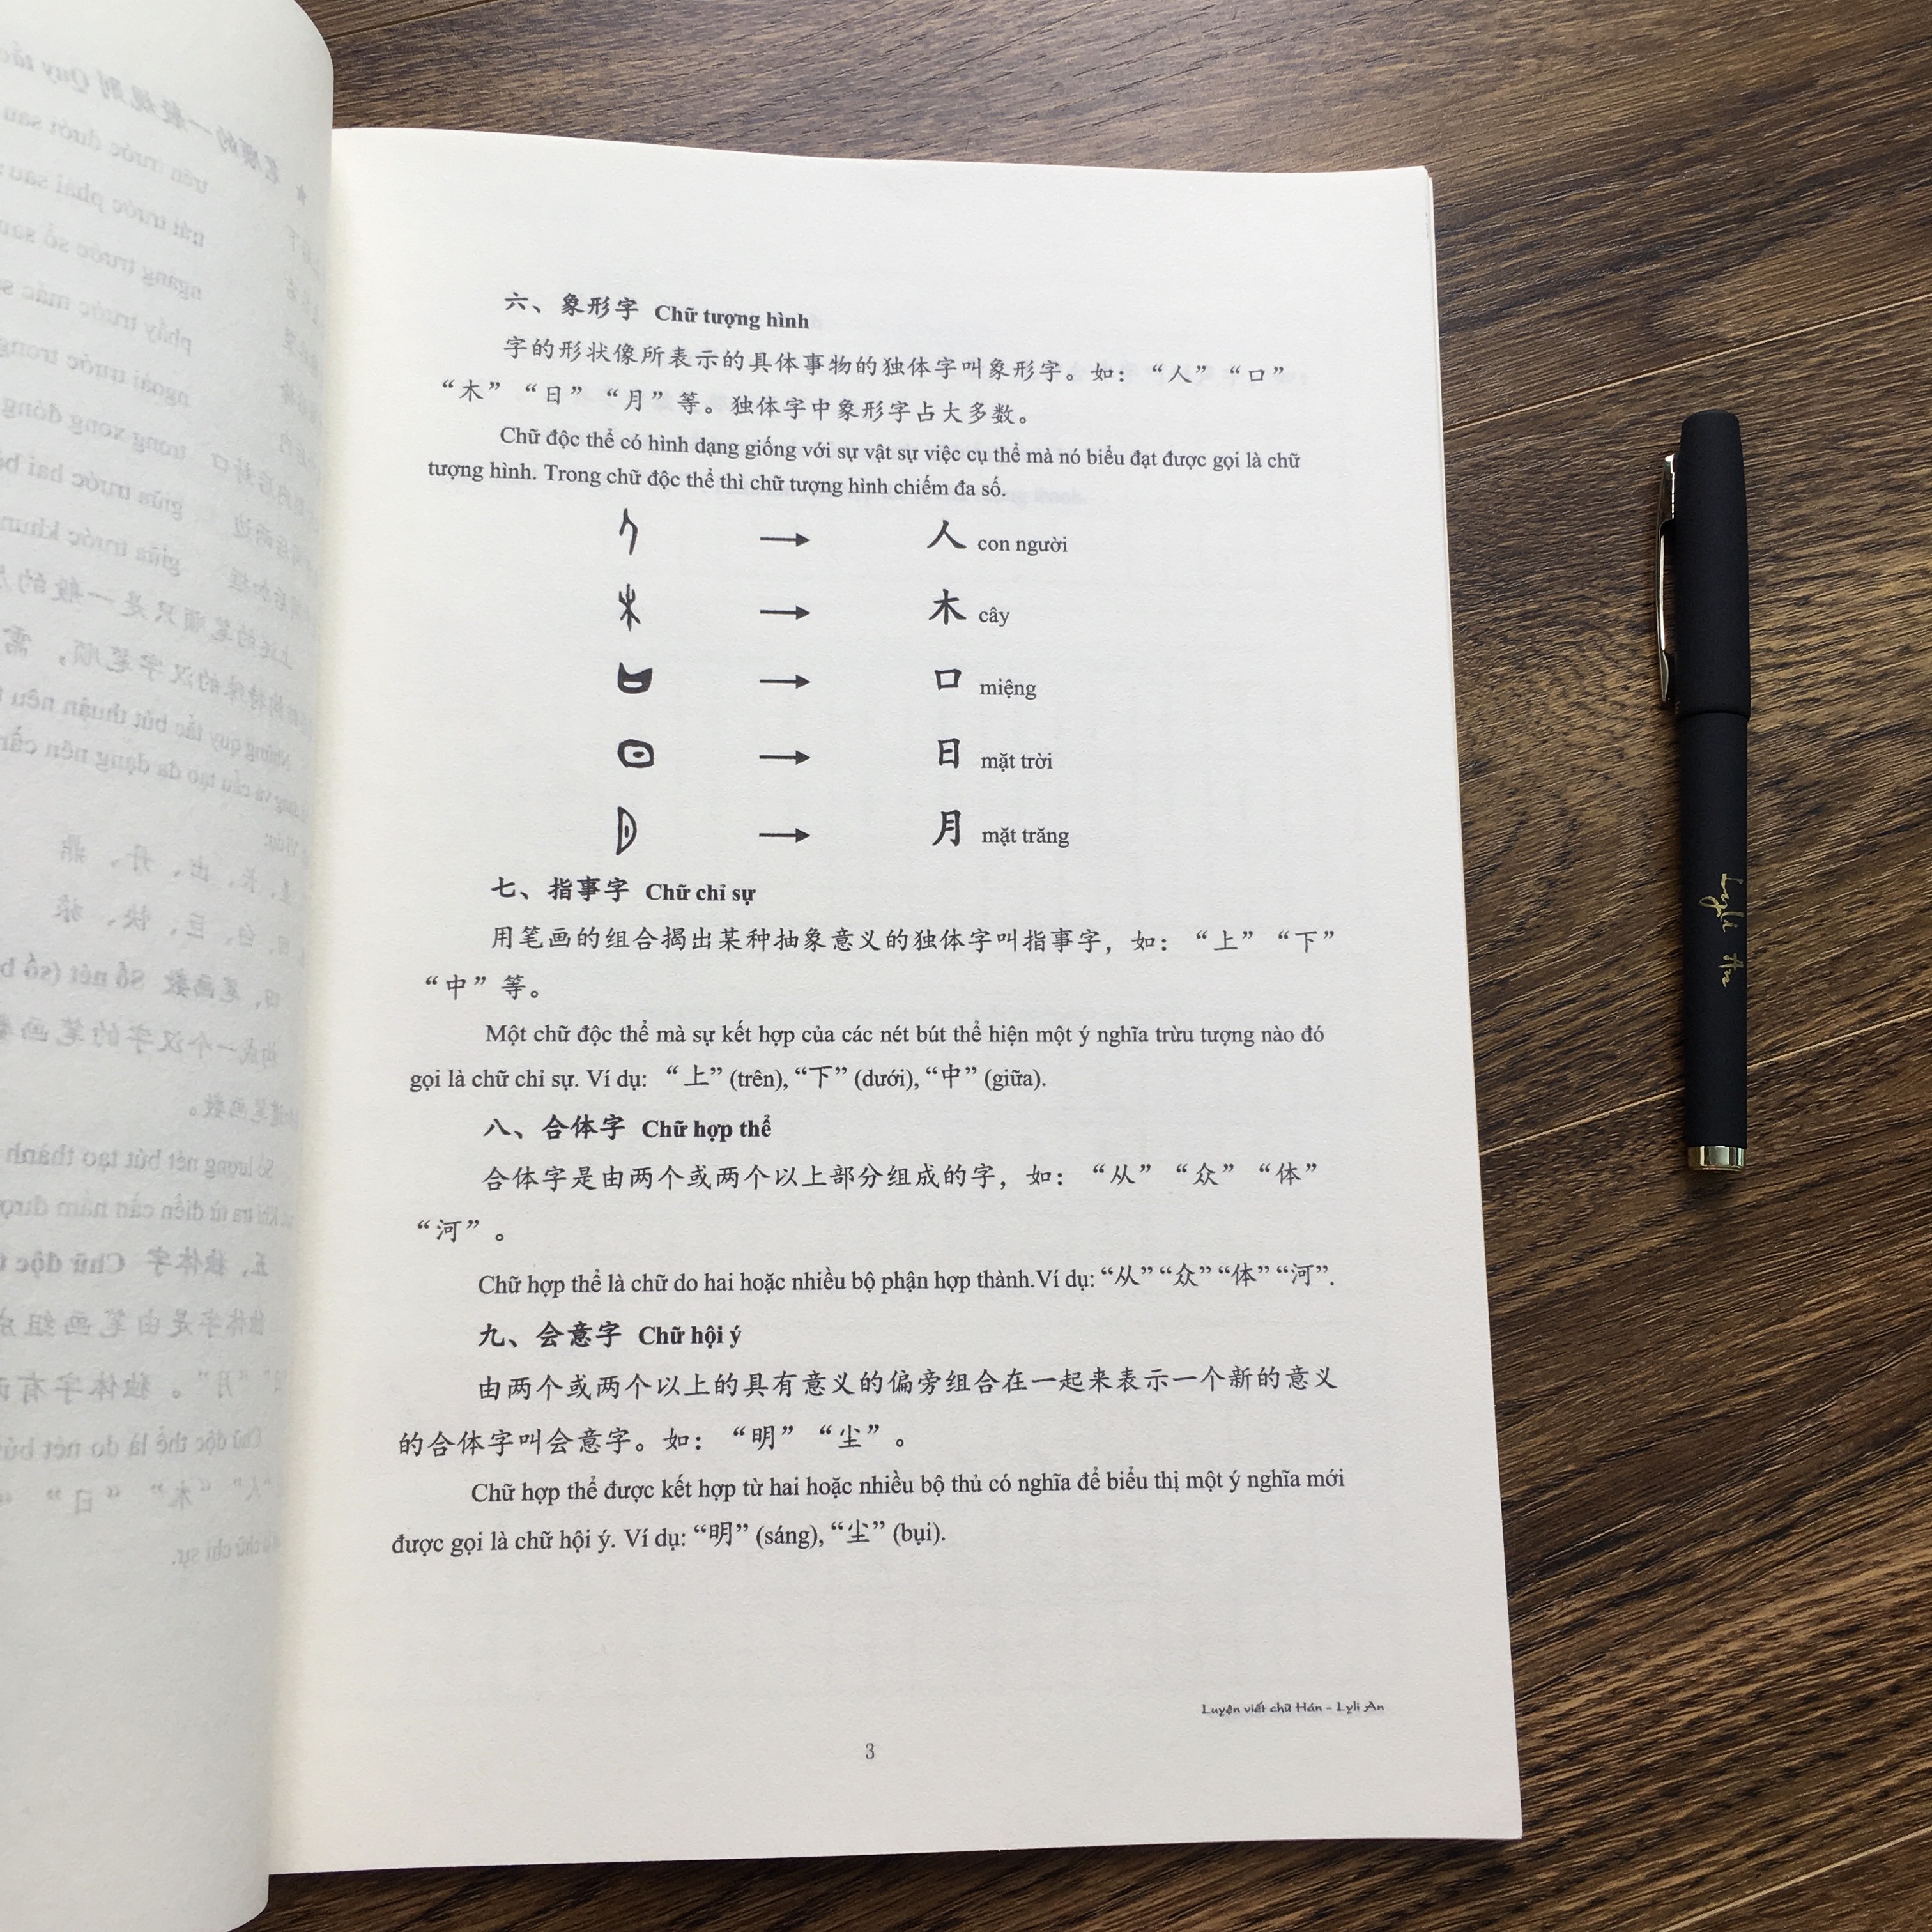 六、象形字 Chữ tượng hình
字的形状像所表示的具体事物的独体字叫象形字。如：“人”“口”
“木”“日”“月”等。独体字中象形字占大多数。
Chữ độc thể có hình dạng giống với sự vật sự việc cụ thể mà nó biểu đạt được gọi là chữ
tượng hình. Trong chữ độc thể thì chữ tượng hình chiếm đa số.
→ 人 con người
→ 木 cây
→ 口 miệng
→ 日 mặt trời
→ 月 mặt trăng
七、指事字 Chữ chỉ sự
用笔画的组合揭出某种抽象意义的独体字叫指事字，如：“上”“下”
“中”等。
Một chữ độc thể mà sự kết hợp của các nét bút thể hiện một ý nghĩa trừu tượng nào đó
gọi là chữ chỉ sự. Ví dụ: “上” (trên), “下” (dưới), “中” (giữa).
八、合体字 Chữ hợp thể
合体字是由两个或两个以上部分组成的字，如：“从”“众”“体”
“河”。
Chữ hợp thể là chữ do hai hoặc nhiều bộ phận hợp thành.Ví dụ: “从” “众” “体” “河”.
九、会意字 Chữ hội ý
由两个或两个以上的具有意义的偏旁组合在一起来表示一个新的意义
的合体字叫会意字。如：“明”“尘”。
Chữ hợp thể được kết hợp từ hai hoặc nhiều bộ thủ có nghĩa để biểu thị một ý nghĩa mới
được gọi là chữ hội ý. Ví dụ: “明” (sáng), “尘” (bụi).
Luyện viết chữ Hán - Lyli An
3
Lyli An